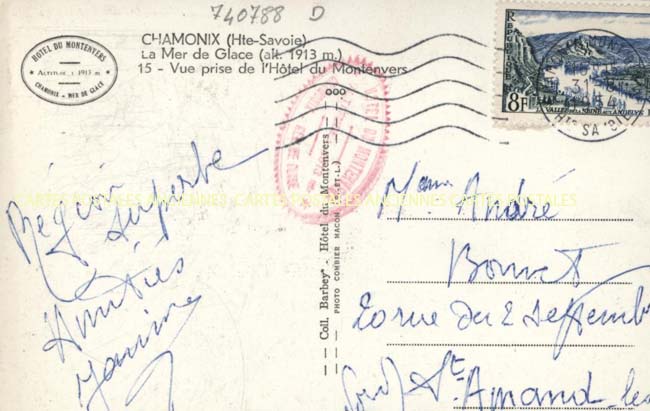 740788 D
HOTEL DU MONTENVERS
ALTITUDE : 1913 m.
CHAMONIX - MER DE GLACE
CHAMONIX (Hte-Savoie)
La Mer de Glace (alt. 1913 m.)
15 - Vue prise de l'Hôtel du Montenvers
8F
VALLÉE DE LA SEINE AUX ANDELYS
31
54
Hte SAV.
HOTEL DU MONTENVERS
CARTES POSTALES ANCIENNES CARTES POSTALES ANCIENNES CARTES POSTALES
Région
superbe
Amitiés
Coll. Barbey - Hôtel du Montenvers
PHOTO COMBIER MACON (S.-ET-L.)
André
Bonnet
rue du 2 septembre
St
Amand-les